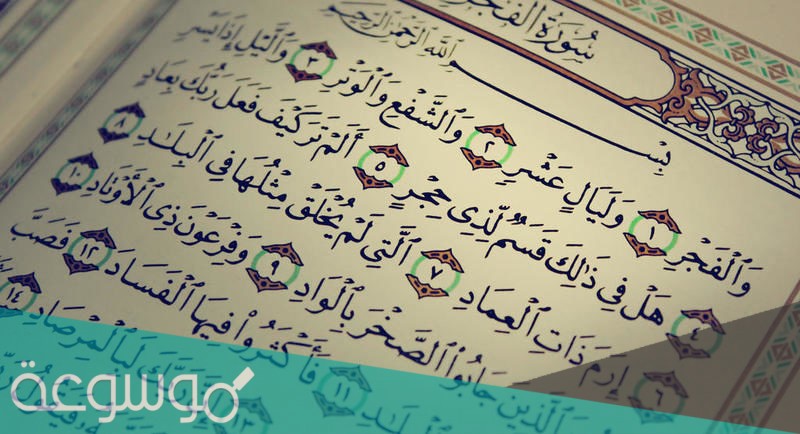 سُورَةُ الفَجْرِ
بِسْمِ ٱللَّهِ ٱلرَّحْمَٰنِ ٱلرَّحِيمِ
وَٱلْفَجْرِ ١ وَلَيَالٍ عَشْرٍ ٢ وَٱلشَّفْعِ وَٱلْوَتْرِ ٣ وَٱلَّيْلِ إِذَا يَسْرِ
٤ هَلْ فِى ذَٰلِكَ قَسَمٌ لِّذِى حِجْرٍ ٥ أَلَمْ تَرَ كَيْفَ فَعَلَ رَبُّكَ بِعَادٍ
٦ إِرَمَ ذَاتِ ٱلْعِمَادِ ٧ ٱلَّتِى لَمْ يُخْلَقْ مِثْلُهَا فِى ٱلْبِلَٰدِ ٨
ٱلَّذِينَ جَابُوا۟ ٱلصَّخْرَ بِٱلْوَادِ ٩ وَفِرْعَوْنَ ذِى ٱلْأَوْتَادِ ١٠
ٱلْبِلَٰدِ ١١ فَأَكْثَرُوا۟ فِيهَا ٱلْفَسَادَ ١٢ فَصَبَّ
١٣ لَبِٱلْمِرْصَادِ ١٤
موسوعة